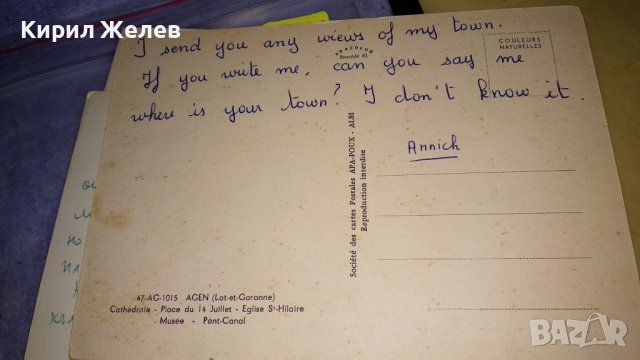 Кирил Желев
I send you any views of my town.
If you write me, can you say me
where is your town? I don't know it.
Annich
APACOLOR
Procédé 81
COULEURS
NATURELLES
Société des cartes Postales APA-POUX - ALBI
Reproduction interdite
47-AG-1015 AGEN (Lot-et-Garonne)
Cathédrale - Place du 14 Juillet - Eglise St-Hilaire
Musée - Pont-Canal
BAZAR
bg